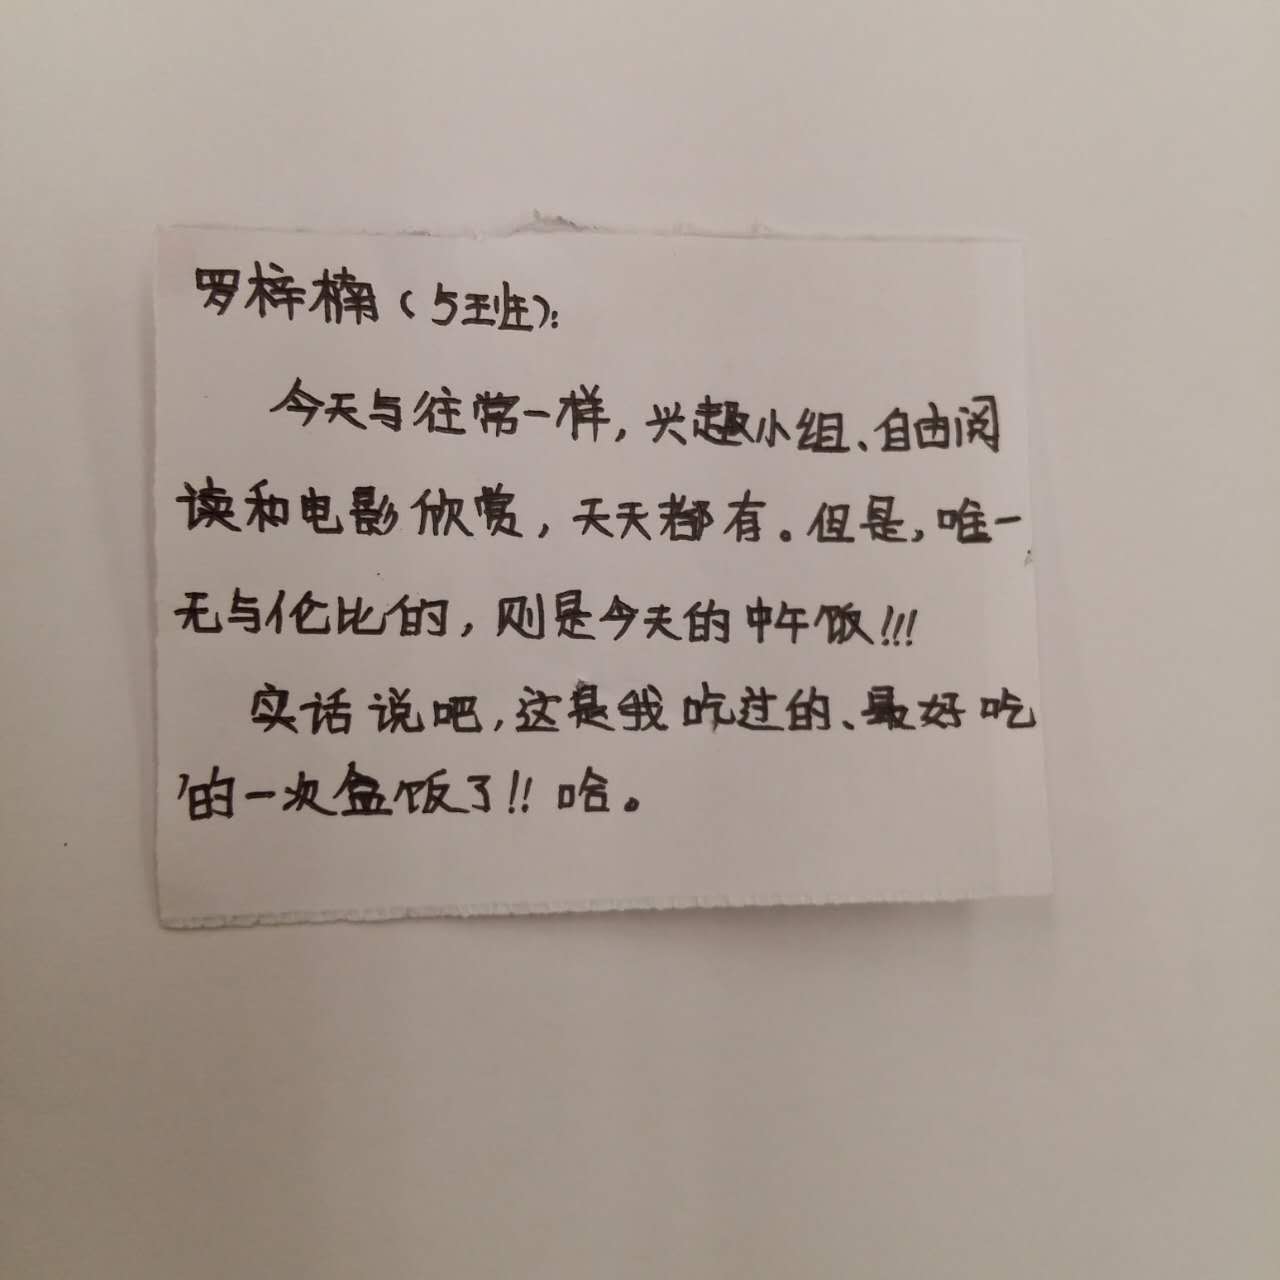 罗梓楠（5班）：
今天与往常一样，兴趣小组、自由阅
读和电影欣赏，天天都有。但是，唯一
无与伦比的，则是今天的中午饭！！！
实话说吧，这是我吃过的、最好吃
的一次盒饭了！！哈。